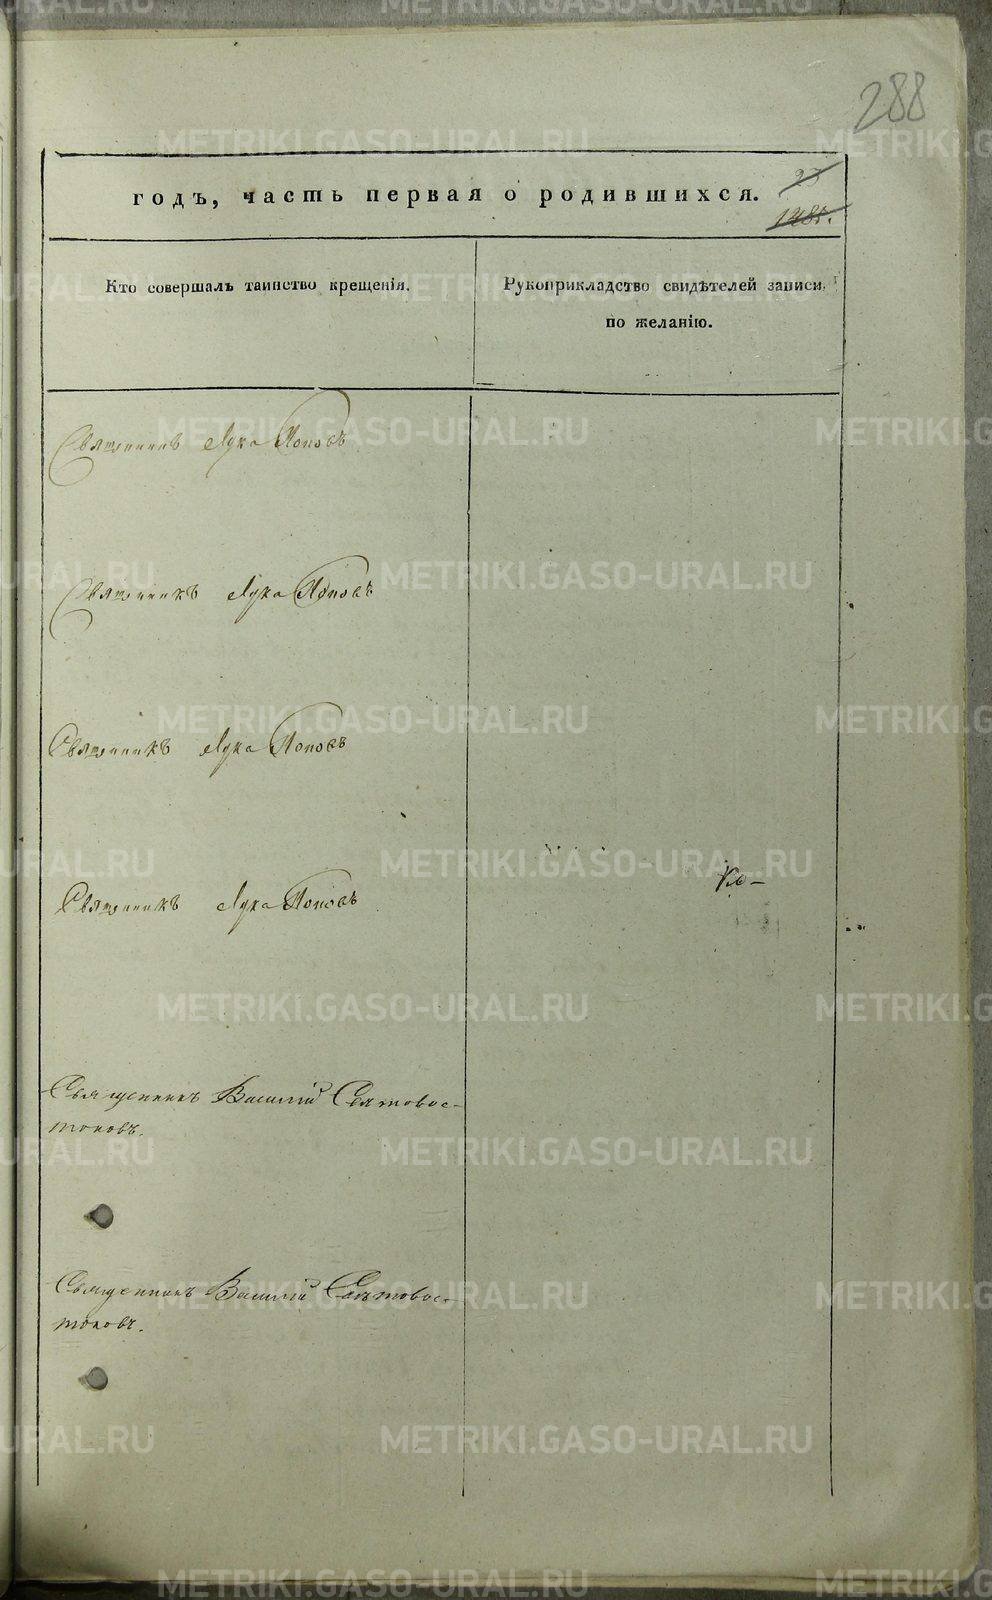 288
годъ, часть первая о родившихся.
23
Кто совершалъ таинство крещенія.
Рукоприкладство свидѣтелей записи
по желанію.
Священникъ Лука Поповъ
Священникъ Лука Поповъ
Священникъ Лука Поповъ
Священникъ Лука Поповъ
Священникъ Василій Святовос-
токовъ.
Священникъ Василій Святовос-
токовъ.
METRIKI.GASO-URAL.RU